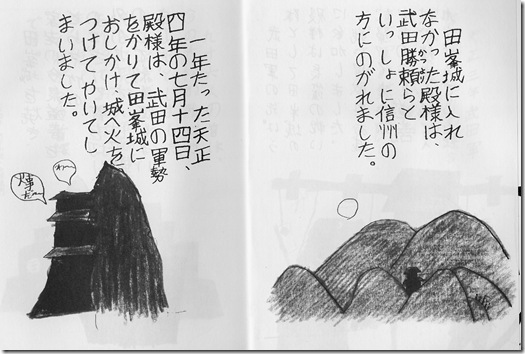 田峯城に入れ
なかった殿様は、
武田勝頼らと
かつより
いっしょに信州の
方にのがれました。
一年たった天正
四年の七月十四日、
殿様は、武田の軍勢
をかりて田峯城に
おしかけ、城へ火を
つけてやいてし
まいました。
わー